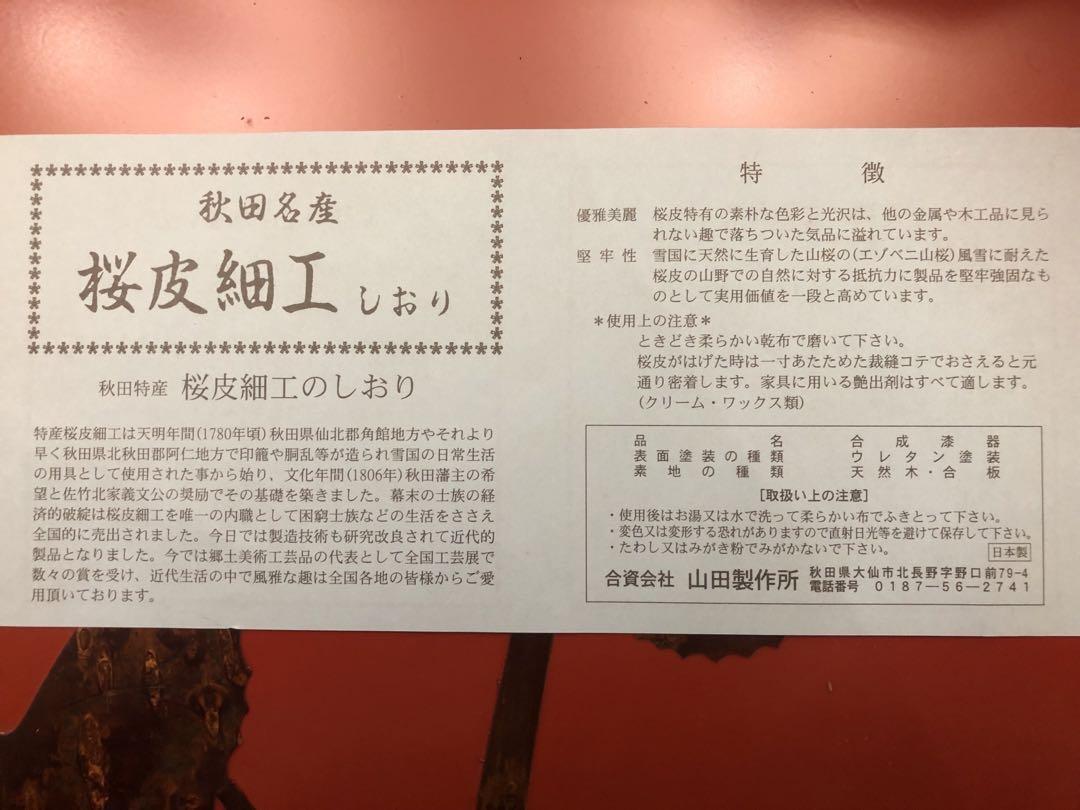 秋田名産
桜皮細工 しおり
秋田特産 桜皮細工のしおり
特産桜皮細工は天明年間(1780年頃)秋田県仙北郡角館地方やそれより
早く秋田県北秋田郡阿仁地方で印籠や胴乱等が造られ雪国の日常生活
の用具として使用された事から始り、文化年間(1806年)秋田藩主の希
望と佐竹北家義文公の奨励でその基礎を築きました。幕末の士族の経
済的破綻は桜皮細工を唯一の内職として困窮士族などの生活をささえ
全国的に売出されました。今日では製造技術も研究改良されて近代的
製品となりました。今では郷土美術工芸品の代表として全国工芸展で
数々の賞を受け、近代生活の中で風雅な趣は全国各地の皆様からご愛
用頂いております。
特徴
優雅美麗 桜皮特有の素朴な色彩と光沢は、他の金属や木工品に見ら
れない趣で落ちついた気品に溢れています。
堅牢性 雪国に天然に生育した山桜の(エゾベニ山桜)風雪に耐えた
桜皮の山野での自然に対する抵抗力に製品を堅牢強固なも
のとして実用価値を一段と高めています。
＊使用上の注意＊
ときどき柔らかい乾布で磨いて下さい。
桜皮がはげた時は一寸あたためた裁縫コテでおさえると元
通り密着します。家具に用いる艶出剤はすべて適します。
(クリーム・ワックス類)
品名 合成漆器
表面塗装の種類 ウレタン塗装
素地の種類 天然木・合板
[取扱い上の注意]
・使用後はお湯又は水で洗って柔らかい布でふきとって下さい。
・変色又は変形する恐れがありますので直射日光等を避けて保存して下さい。
・たわし又はみがき粉でみがかないで下さい。 日本製
合資会社 山田製作所 秋田県大仙市北長野字野口前79-4
電話番号 0187-56-2741